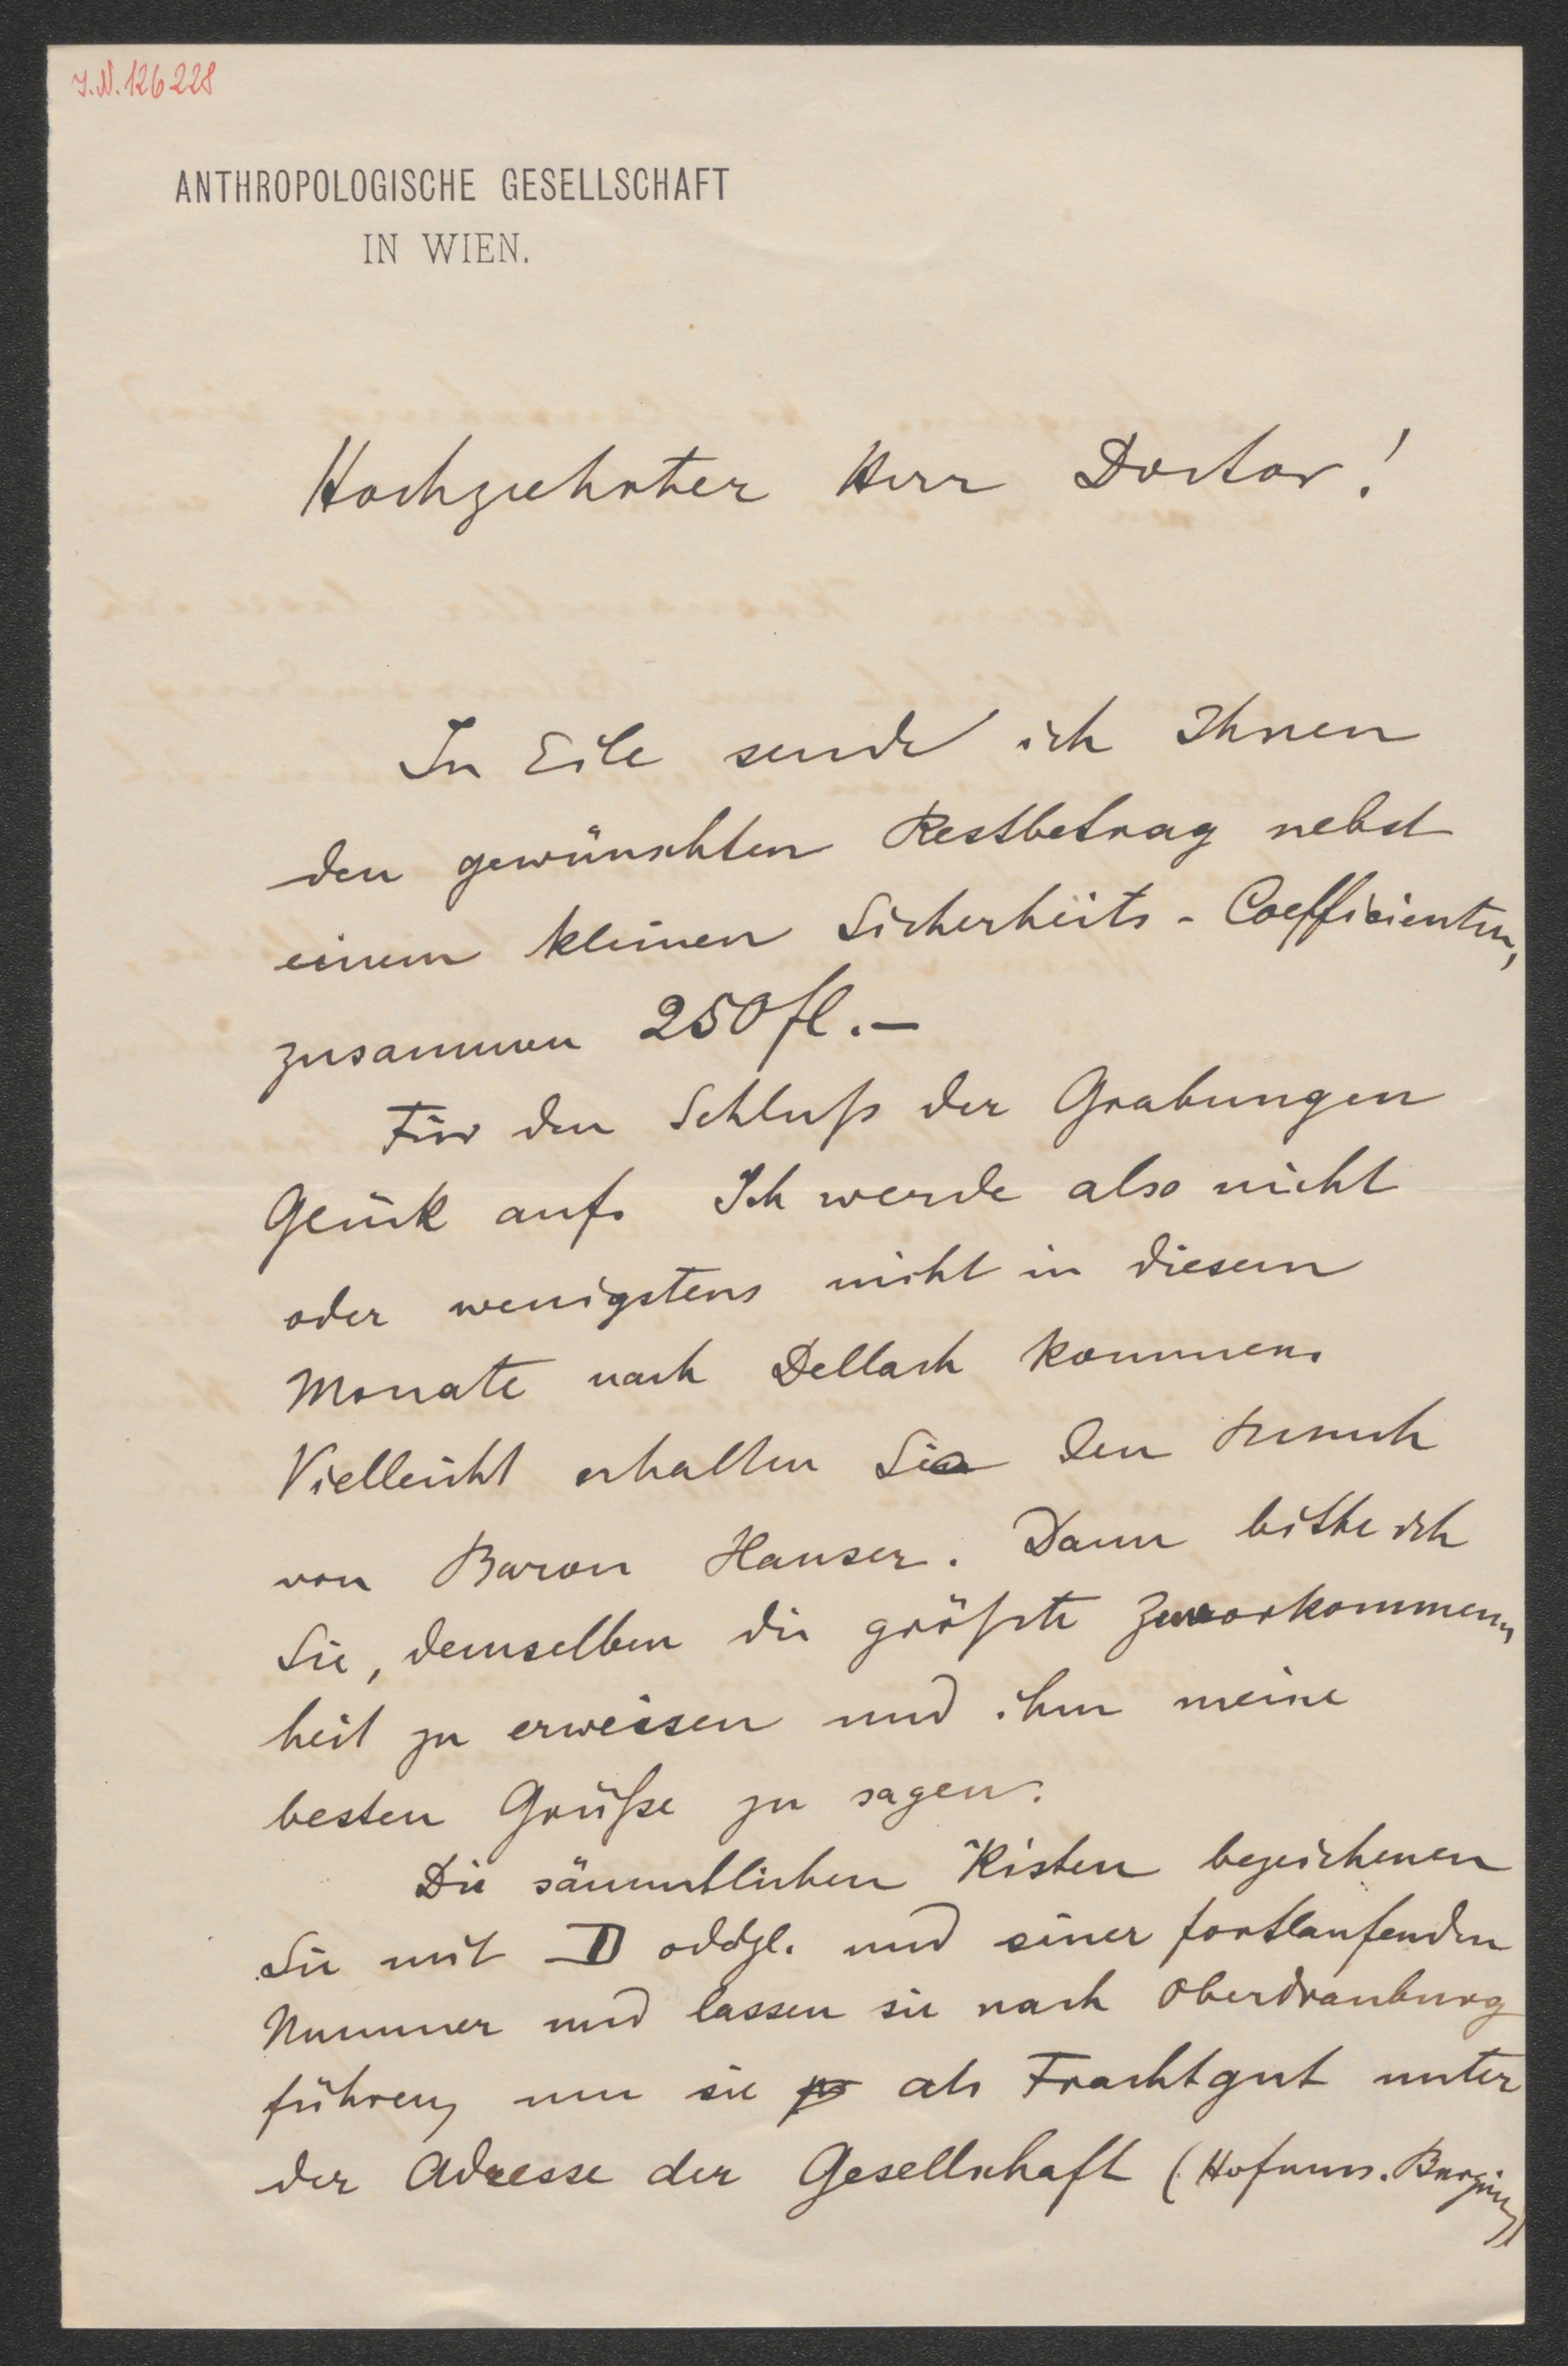 I.N. 126228
ANTHROPOLOGISCHE GESELLSCHAFT
IN WIEN.
Hochgeehrter Herr Doctor!
In Eile sende ich Ihnen
den gewünschten Restbetrag nebst
einem kleinen Sicherheits-Coefficienten,
zusammen 250 fl.–
Für den Schluß der Grabungen
Glück auf. Ich werde also nicht
oder wenigstens nicht in diesem
Monate nach Dellach kommen.
Vielleicht erhalten Sie den Besuch
von Baron Hauser. Dann bitte ich
Sie, demselben die größte Zuvorkommen„
heit zu erweisen und ihm meine
besten Grüße zu sagen.
Die sämmtlichen Kisten bezeichenen
Sie mit D oddgl. und einer fortlaufenden
Nummer und lassen sie nach Oberdrauburg
führen, um sie als Frachtgut unter
der Adresse der Gesellschaft (Hofmus. Burgring)